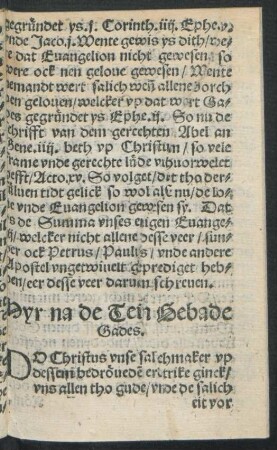 gegründet ys. j. Corinth. iiij. Ephe. v.
vnde Jaco. j. Wente gewis ys dith / we-
re dat Euangelion nicht gewesen / so
were ock nen geloue gewesen / Wente
nemandt wert salich wen allene dorch
den gelouen / welcker yp dat wort Ga-
des gegründet ys Ephe. ij. So nu de
schrifft van dem gerechten Abel an
Gene. iiij. beth yp Christum / so vele
frame vnde gerechte lüde vthuorwelet
hefft / Acto. xv. So volget / dat tho der
süluen tidt gelick so wol alse nu / de lo-
ue vnde Euangelion gewesen sy. Dat
ys de Summa vnses eiigen Euange-
lij / welcker nicht allene desse veer / sün-
der ock Petrus / Paulus / vnde andere
Apostel vngetwiuelt geprediget heb-
ben / eer desse veer darum schreuen.
Hyr na de Tein Gebade
Gades.
DO Christus vnse salichmaker vp
dessem bedröuede ertrike ginck /
vns allen tho gude / vnde de salich
eit vor